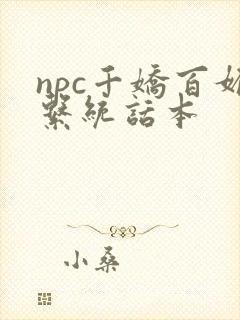 npc千嬌百媚
繫統話本
小桑